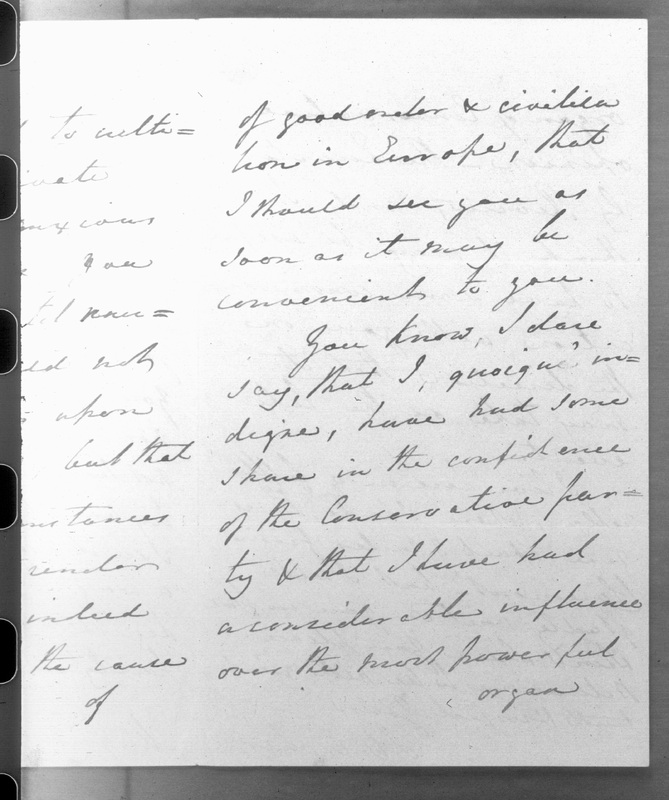 to culti=
ivate
anxious
you
upon
but that
instances
render
indeed
the cause
of
of good order & civilisa
tion in Europe, that
I should see you as
soon as it may be
convenient to you.
You know, I dare
say, that I, quoiqu' in=
digne, have had some
share in the confidence
of the Conservative par=
ty & that I have had
a considerable influence
over the most powerful
organ